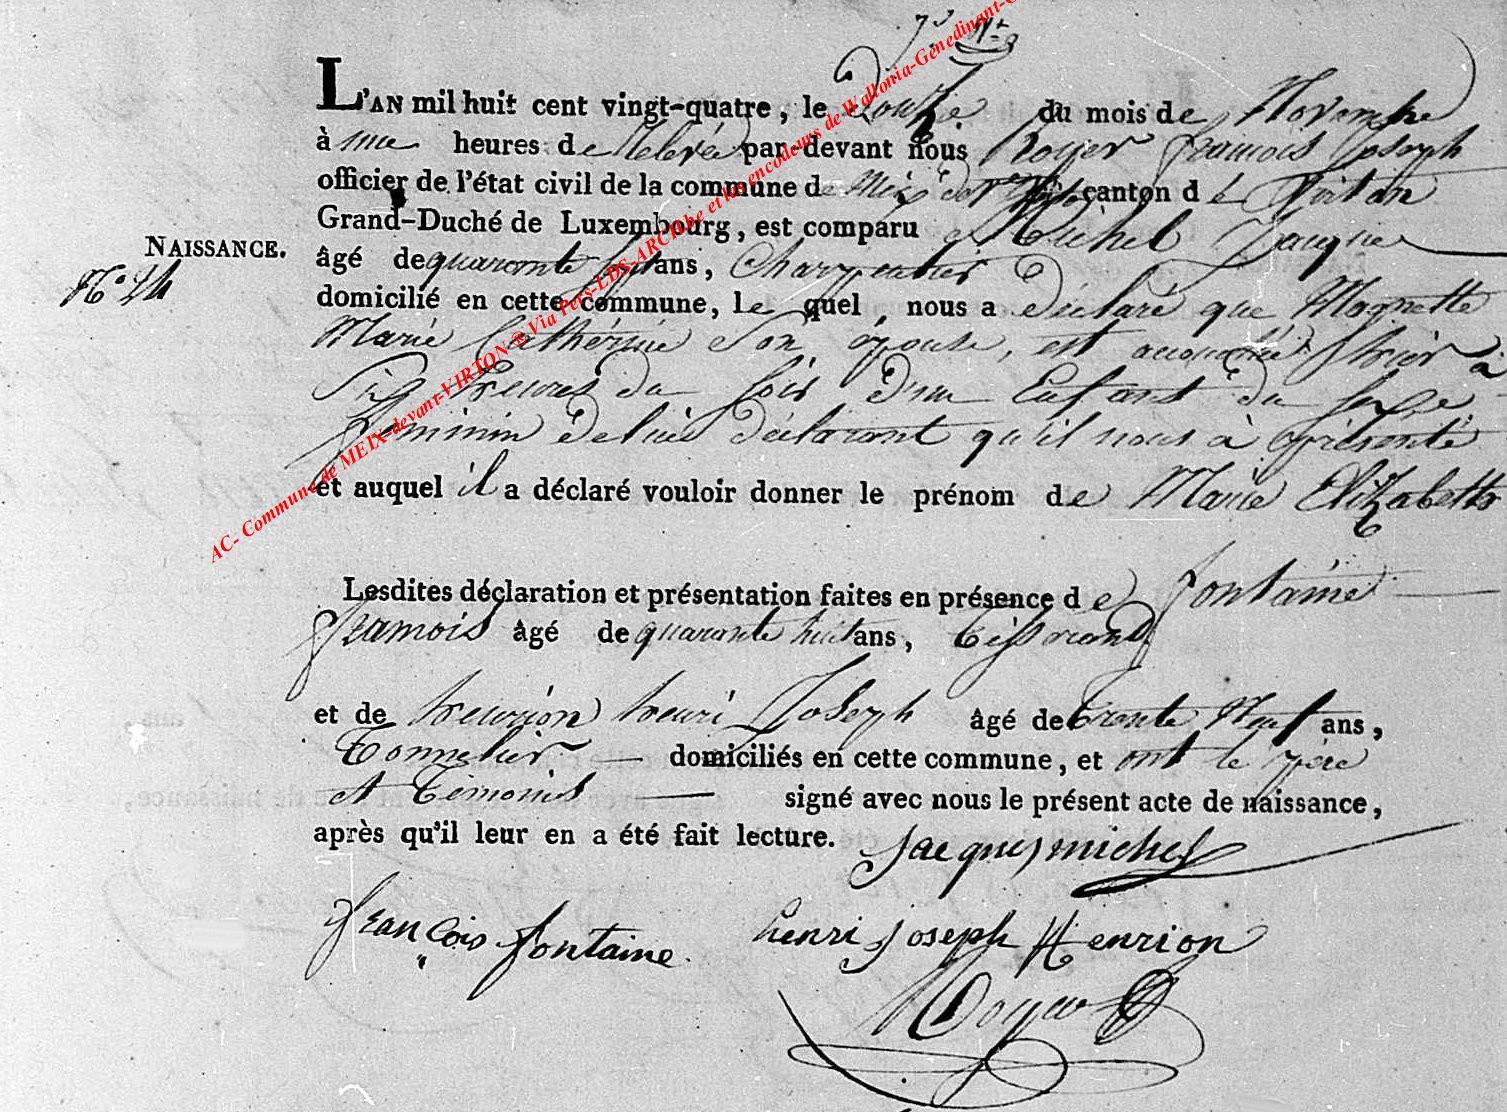 L'AN mil huit cent vingt-quatre, le Douze du mois de Novembre
à une heures de Relevée par-devant nous Royer francois Joseph
officier de l'état civil de la commune de Meix dvt Virton canton de Virton
Grand-Duché de Luxembourg, est comparu Michel Jacque
NAISSANCE.
âgé de quarante sept ans, Charpentier
N.° 24
domicilié en cette commune, le quel nous a déclaré que Magnette
Marie Cathérine Son épouse, est accouchée hier à
Six heures du Soir d'un Enfant du Sexe
feminin de lui déclarant qu'il nous à présenté
et auquel il a déclaré vouloir donner le prénom de Marie Elizabeth
Lesdites déclaration et présentation faites en présence de fontaine
francois âgé de quarante huit ans, Tisserand
et de henrion henri Joseph âgé de trente Neuf ans,
Tonnelier domiciliés en cette commune, et ont le père
et Témoins signé avec nous le présent acte de naissance,
après qu'il leur en a été fait lecture.
Jacques michel
françois fontaine
henri joseph Henrion
Royer
AC- Commune de MEIX-devant-VIRTON ® Via Pers-LDS-ARCH.be et les encodeurs de Wallonia-Genedinant-